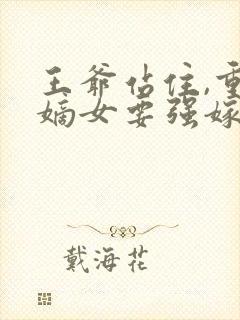 王爷站住,重
嫡女要强嫁
戴海花